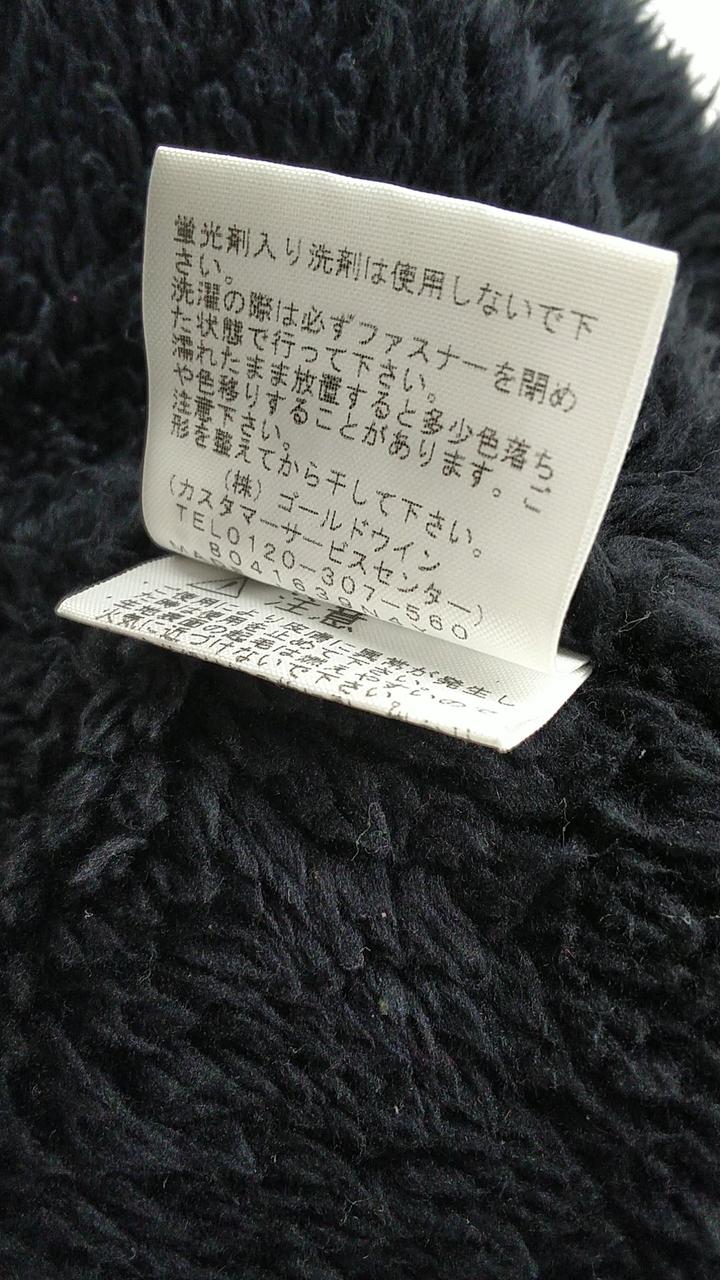 蛍光剤入り洗剤は使用しないで下
さい。
洗濯の際は必ずファスナーを閉め
た状態で行って下さい。
濡れたまま放置すると多少色落ち
や色移りすることがあります。ご
注意下さい。
形を整えてから干して下さい。
(株) ゴールドウイン
(カスタマーサービスセンター)
TEL0120-307-560
注意
ご使用により皮膚に異常が発生し
火気に近づけないで下さい。